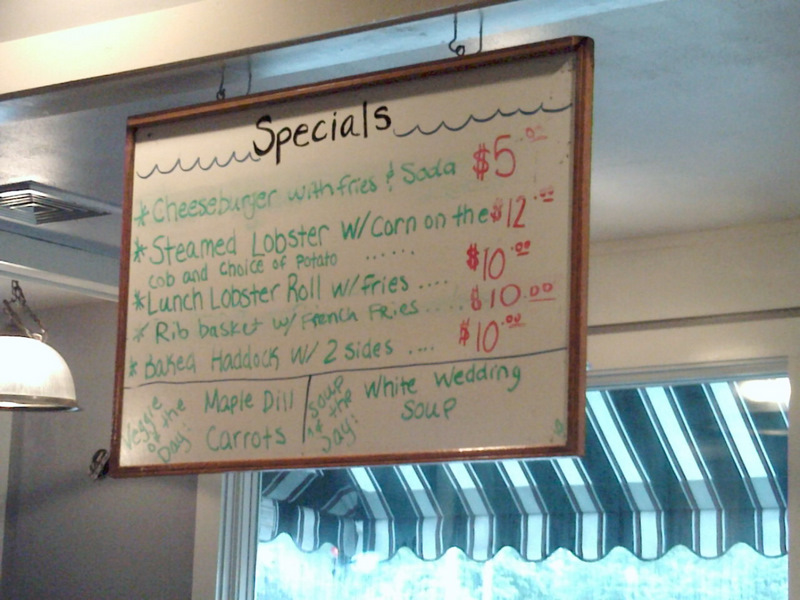 Specials
*Cheeseburger with fries & Soda $5.00
*Steamed Lobster w/Corn on the $12.00
cob and choice of Potato ......
*Lunch Lobster Roll w/fries .... $10.00
*Rib basket w/ French Fries .... $10.00
*Baked Haddock w/ 2 sides .... $10.00
Veggie
of the
Day:
Maple Dill
Carrots
Soup
of the
Day:
White Wedding
Soup